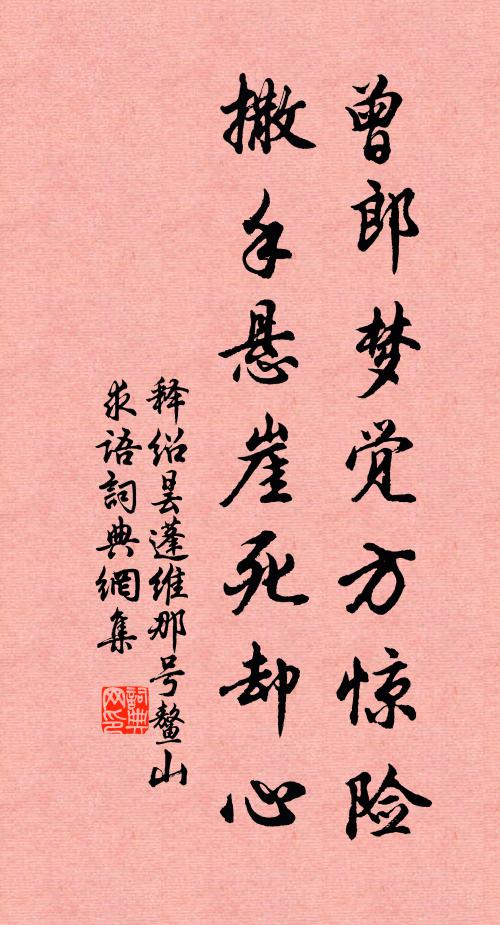 曾郎梦觉方惊险
撒手悬崖死却心
释绍昙蓬维那号鳌山
求语詞典網集
詞典
网印